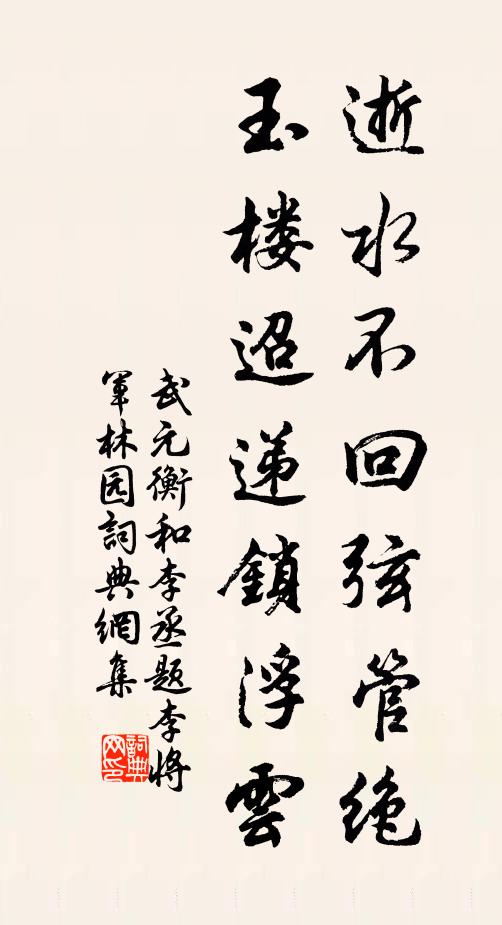 逝水不回弦管绝
玉楼迢递鎖浮雲
武元衡和李丞题李将
軍林园詞典網集
詞典
网印